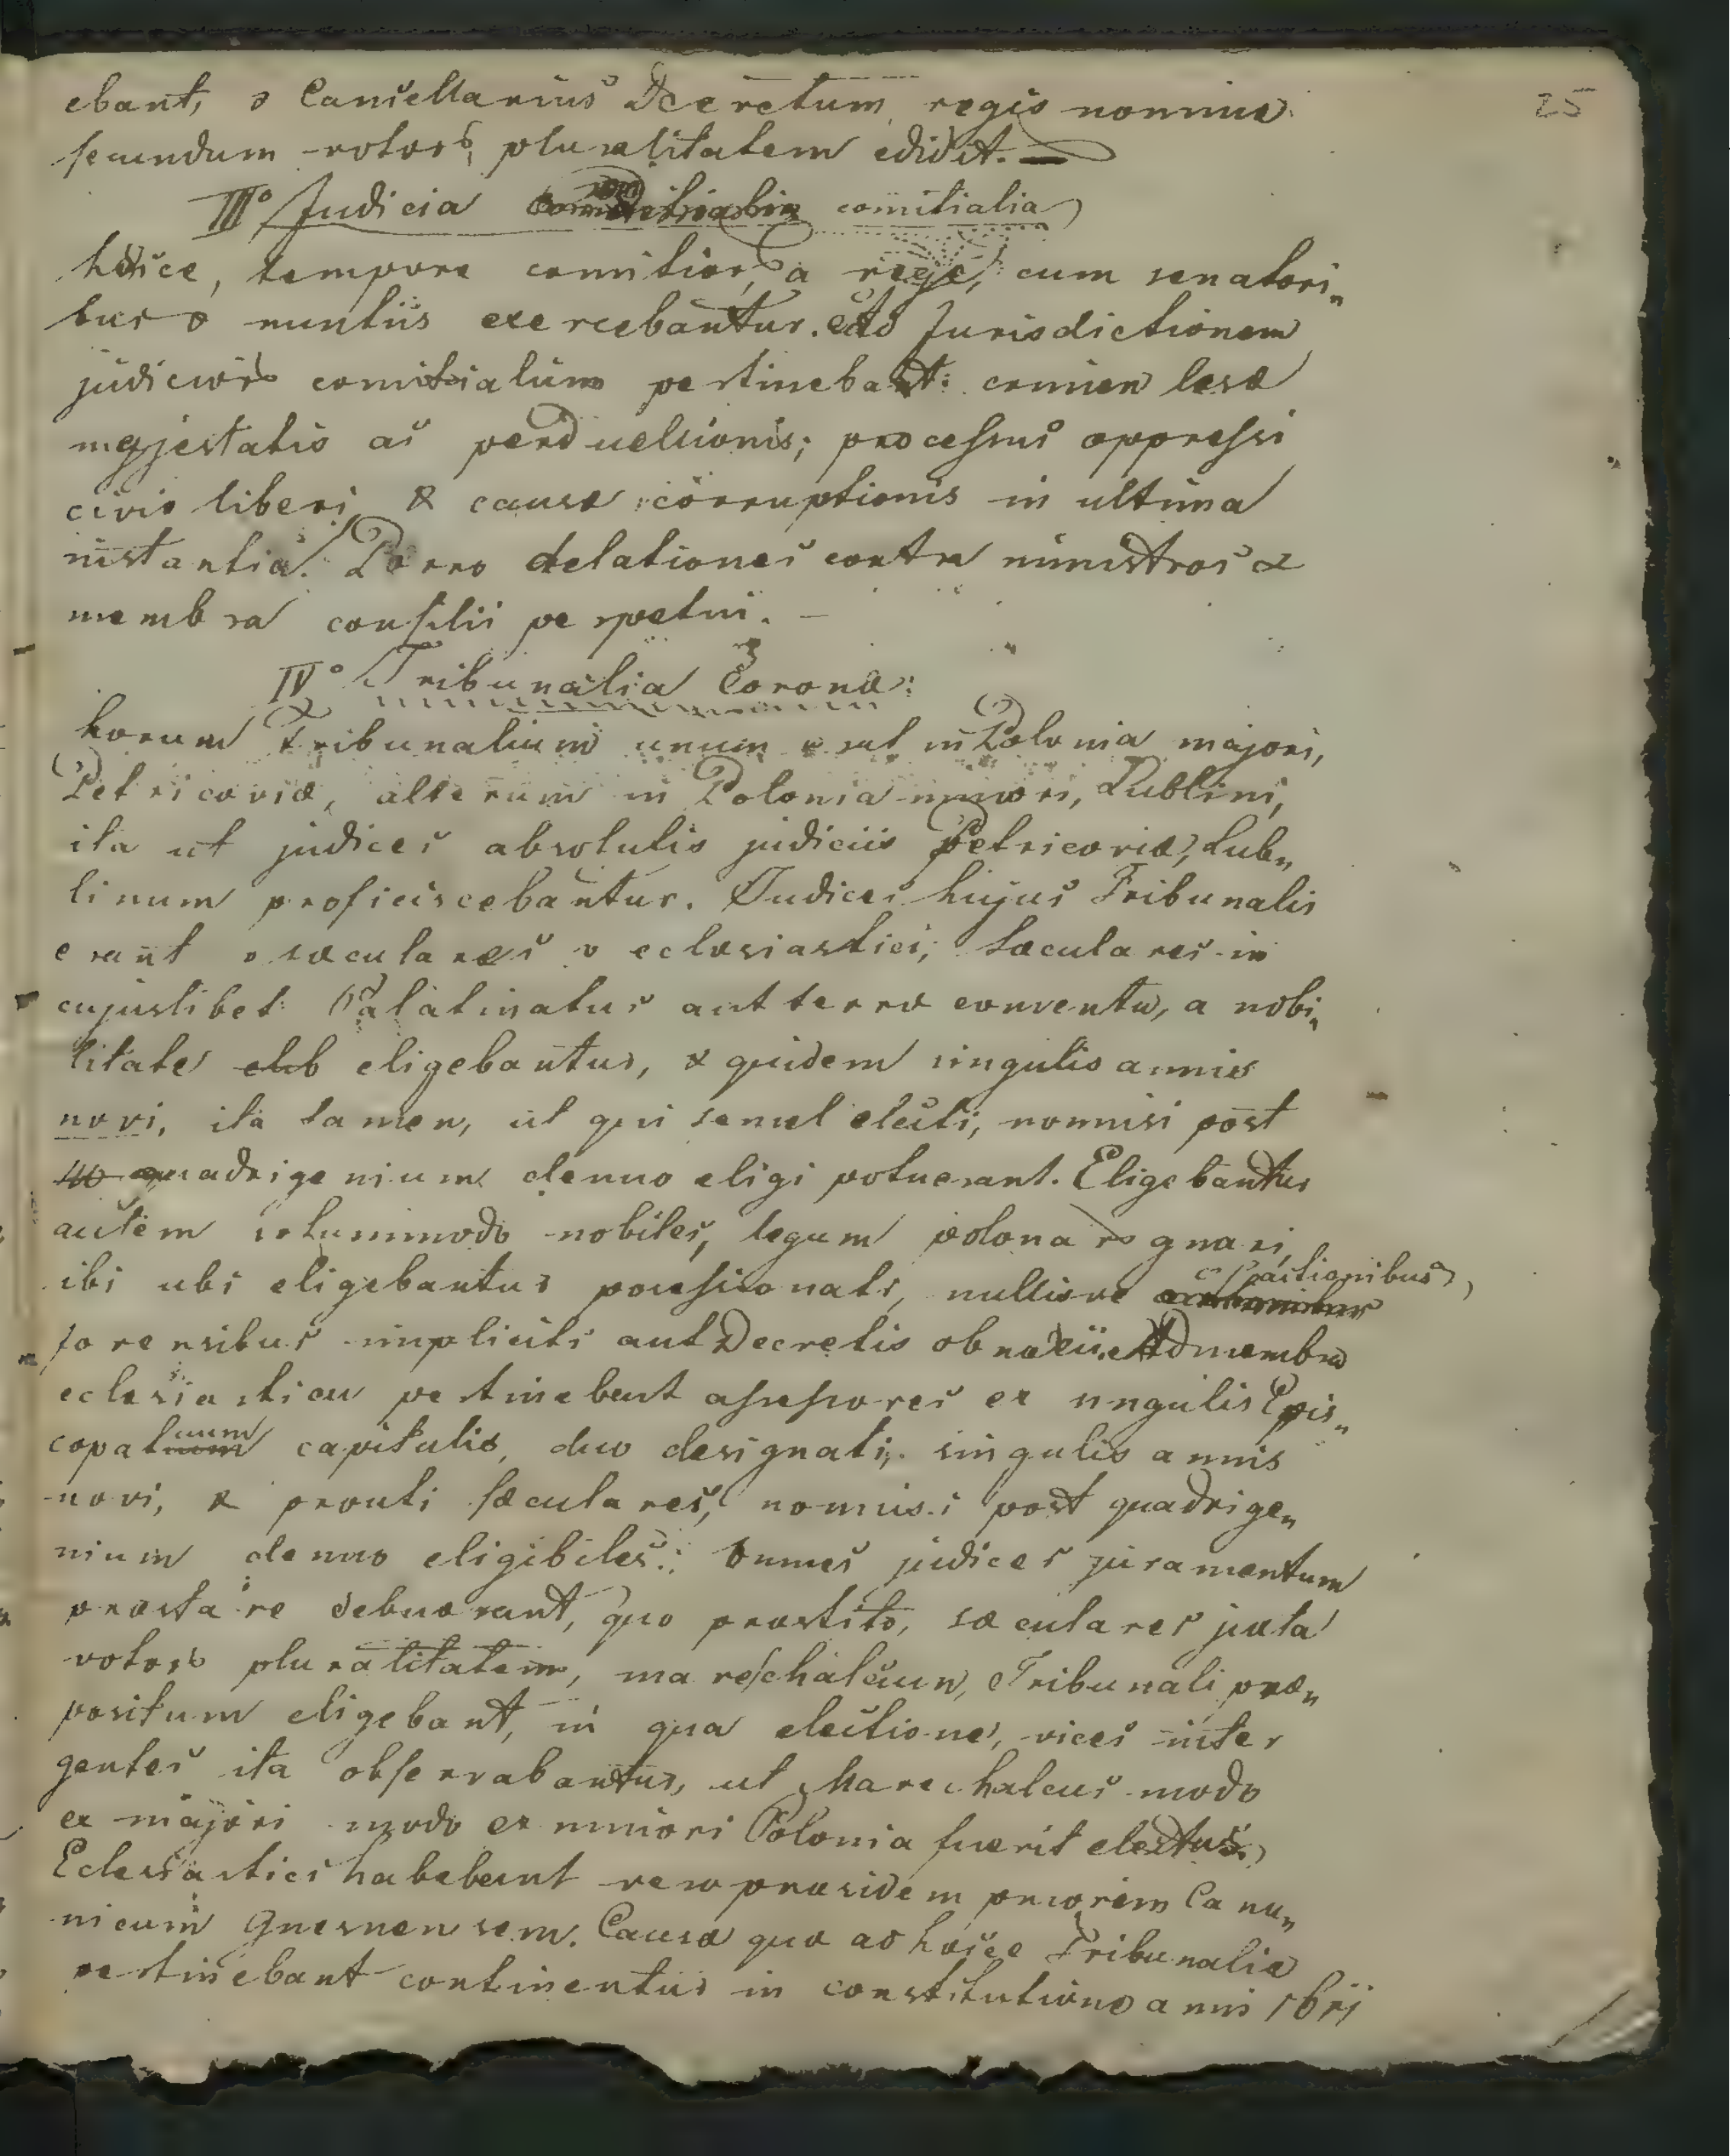 25
ebant, & Cancellarius Decretum regis nomine
secundum votor. pluralitatem edidit. —
III° Judicia comitialia
hæce, tempore comitior. a rege, cum senatori„
bus & nuntiis exercebantur. Ad Jurisdictionem
judicior. comitialium pertinebant: crimen lesæ
majestatis ac perduellionis; processus oppressi
civis liberi & causæ corruptionis in ultima
instantia. Porro delationes contra ministros &
membra consilii perpetui. —
IV° Tribunalia Coronæ:
horum Tribunalium unum erat in Polonia majori,
Petricoviæ, alterum in Polonia minori, Lublini,
ita ut judices absolutis judiciis Petricoviæ, Lub„
linum proficiscebantur. Judices hujus Tribunalis
erant & sæculares & eclesiastici; sæculares in
cujuslibet Palatinatus aut terræ conventu, a nobi„
litate elib eligebantur, & quidem singulis annis
novi, ita tamen, ut qui semel electi, nonnisi post
quadrigenium denuo eligi potuerant. Eligebantur
autem solummodo nobiles, legum polonar. gnari,
ibi ubi eligebantur possessionati, nullisve actionibus
forensibus impliciti aut Decretis obnoxii. Ad membra
eclesiastica pertinebant assessores ex singulis Epis„
copalium capitulis, duo designati, singulis annis
novi, & prouti sæculares, nonnisi post quadrige„
nium denuo eligibiles. Omnes judices juramentum
præstare debuerant, quo præstito, sæculares juxta
votor. pluralitatem, mareschalcum, Tribunali præ„
positum eligebant, in qua electione, vices inter
gentes ita observabantur, ut Marechalcus modo
ex majori modo ex minori Polonia fuerit electus.
Eclesiastici habebant vero præsidem priorem Cano„
nicum Gnesnensem. Causæ quæ ad hæce Tribunalia
pertinebant continentur in constitutione anni